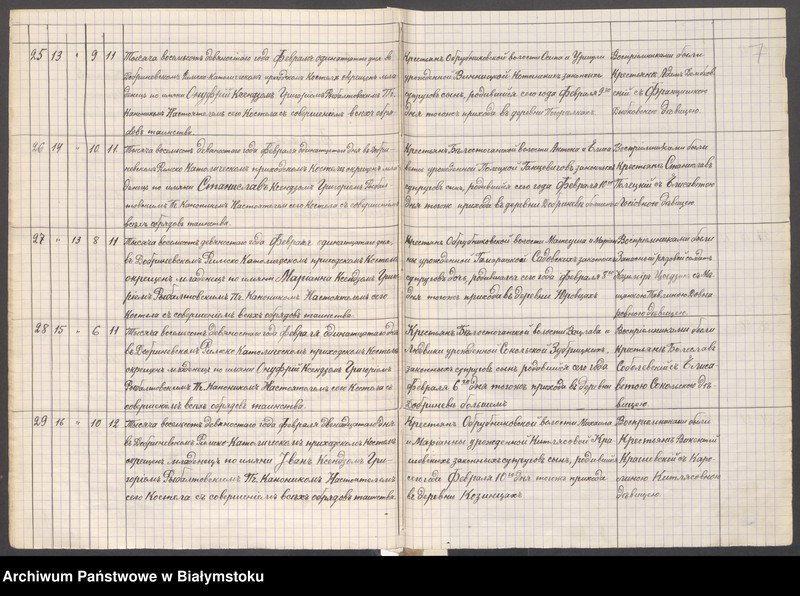 7
25 13 " 9 11 Тысяча восемьсот девяностаго года Февраля одинадцатаго дня в
Добриневском Римско Католическом приходском Костеле окрещен мла-
денец по имени Онуфрий Ксендзом Григориом Рыбалтовским Пѣ.
Каноником Настоятелем сего Костела с совершением всех обря-
дов таинства.
Крестьян Обрубниковской волости Осипа и Урсули
урожденной Винницкой законных
супругов сын, родившийся сего года Февраля 9го
дня тогож прихода в деревни
Восприемниками были
Крестьяне Адам
ский с Францишкою
девицею.
26 14 " 10 11 Тысяча восемьсот девяностаго года Февраля одинадцатаго дня в Добри-
невском Римско Католическом приходском Костеле окрещен мла-
денец по имени Станислав Ксендзом Григориом Рыбал-
товским Пѣ. Каноником Настоятелем сего Костела с совершением
всех обрядов таинства.
Крестьян Белостоганской волости Антона и Елиса-
веты урожденной Полецкой Ганцевичов законных
супругов сын, родившийся сего года Февраля 10го
дня тогож прихода в деревни Добриневе
Восприемниками были
Крестьяне Станислав
Полецкий с Елисаветою
девицею.
27 " 13 8 11 Тысяча восемьсот девяностаго года Февраля одинадцатаго дня,
в Добриневском Римско Католическом приходском Костеле
окрещен младенец по имени Марианна Ксендзом Григо-
риом Рыбалтовским Пѣ. Каноником Настоятелем сего
Костела с совершением всех обрядов таинства.
Крестьян Обрубниковской волости Матеуша и Мариан-
ны урожденной Садовских законных
супругов дочь, родившаяся сего года Февраля 8го
дня тогож прихода в деревни Юровцах
Восприемниками были
Запасный рядовой солдат
Казимир с Ма-
рцелею Павлиною
девицею.
28 15 " 6 11 Тысяча восемьсот девяностаго года Февраля одинадцатаго дня
в Добриневском Римско Католическом приходском Костеле
окрещен младенец по имени Онуфрий Ксендзом Григориом
Рыбалтовским Пѣ. Каноником Настоятелем сего Костела с
совершением всех обрядов таинства.
Крестьян Белостоганской волости Вацлава и
Людвики урожденной Сокольской Зубрицких,
законных супругов сын родившийся сего года
Февраля 6го дня тогож прихода в деревни
Добриневе большем
Восприемниками были
Крестьяне Болеслав
Соболевский с Елиса-
ветою Сокольскою де-
вицею.
29 16 " 10 12 Тысяча восемьсот девяностаго года Февраля двенадцатаго дня
в Добриневском Римско Католическом приходском Костеле
окрещен младенец по имени Iван Ксендзом Гри-
гориом Рыбалтовским Пѣ. Каноником Настоятелем
сего Костела с совершением всех обрядов таинства.
Крестьян Обрубниковской волости Михаила
и Марианны урожденной Китлясовой Кра-
шевских законных супругов сын, родившийся
сего года Февраля 10го дня тогож прихода
в деревни Козинцах
Восприемниками были
Крестьяне Викентий
Крашевский с Каро-
линою Китлясовною
девицею.
Archiwum Państwowe w Białymstoku